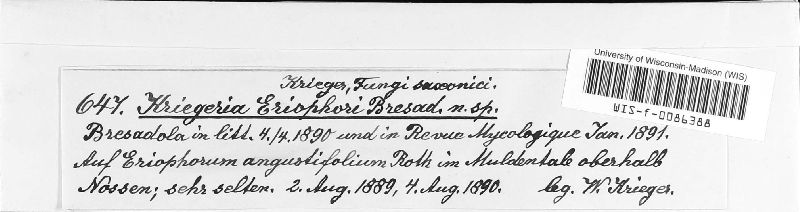 Krieger, Fungi saxonici.
University of Wisconsin-Madison (WIS)
WIS-f-0086388
647. Kriegeria Eriophori Bresad. n. sp.
Bresadola in litt. 4./4. 1890 und in Revue Mycologique Jan. 1891.
Auf Eriophorum angustifolium Roth im Muldentale oberhalb
Nossen; sehr selten. 2. Aug. 1889, 4. Aug. 1890. leg. W. Krieger.